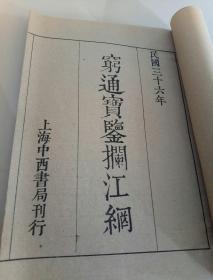 民國三十六年
窮通寶鑒攔江網
上海中西書局刊行